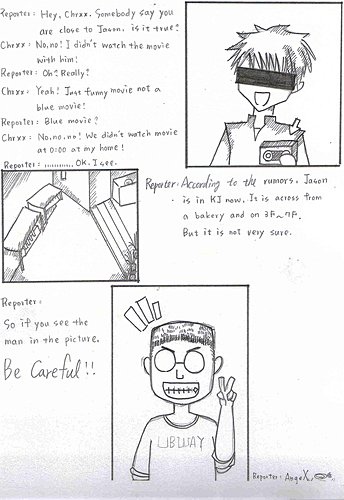 Reporter: Hey, Chrxx. Somebody say you
are close to Jason. is it true?
Chrxx: No, no! I didn't watch the movie
with him!
Reporter: Oh? Really?
Chrxx: Yeah! Just funny movie not a
blue movie!
Reporter: Blue movie?
Chrxx: No, no, no! We didn't watch movie
at 0:00 at my home!
Reporter: ............ OK. I see.
Reporter: According to the rumors, Jason
is in KJ now. It is across from
a bakery and on 3F~7F.
But it is not very sure.
Reporter:
So if you see the
man in the picture.
Be Careful!!
UBWAY
Reporter: AngeX.